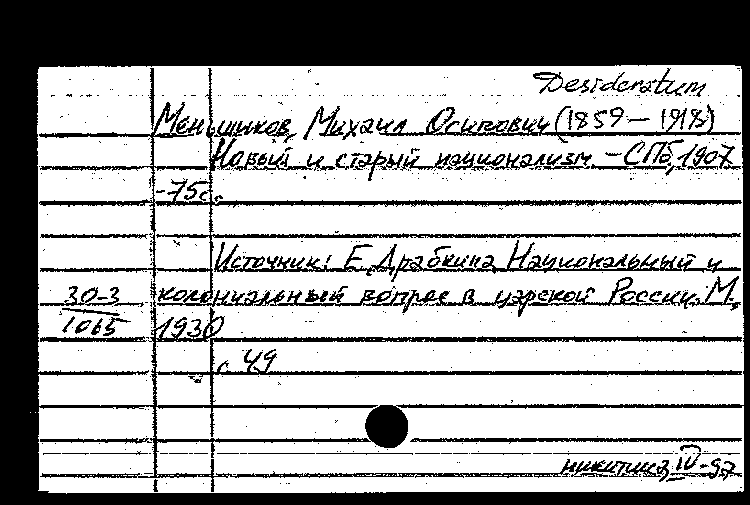 Desideratum
Меньшиков, Михаил Осипович (1859 – 1918)
Новый и старый национализм. – СПб, 1907
-75с.
Источник: Е. Драбкина. Национальный и
30-3 колониальный вопрос в царской России. М.,
1065 1930
с 49
никитина, IV-97